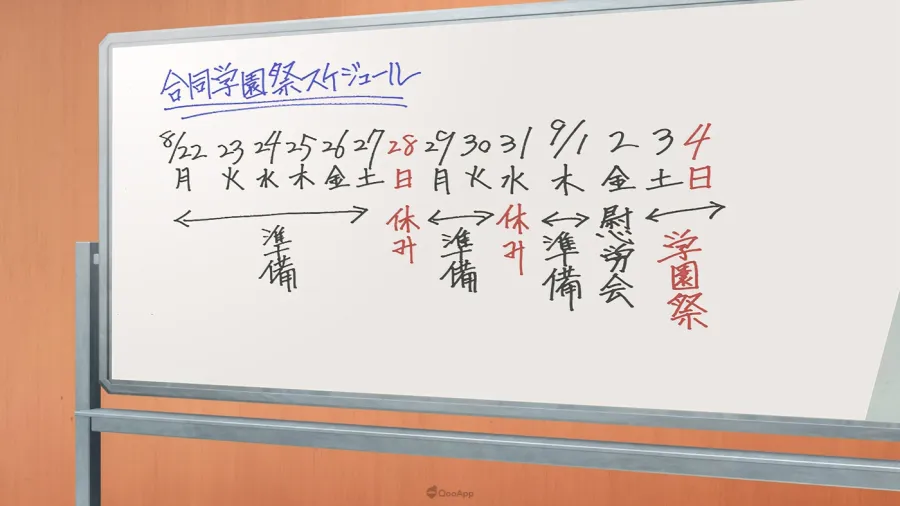 合同学園祭スケジュール
8/22 23 24 25 26 27 28 29 30 31 9/1 2 3 4
月 火 水 木 金 土 日 月 火 水 木 金 土 日
準備 休み 準備 休み 準備 慰労会 学園祭
QooApp